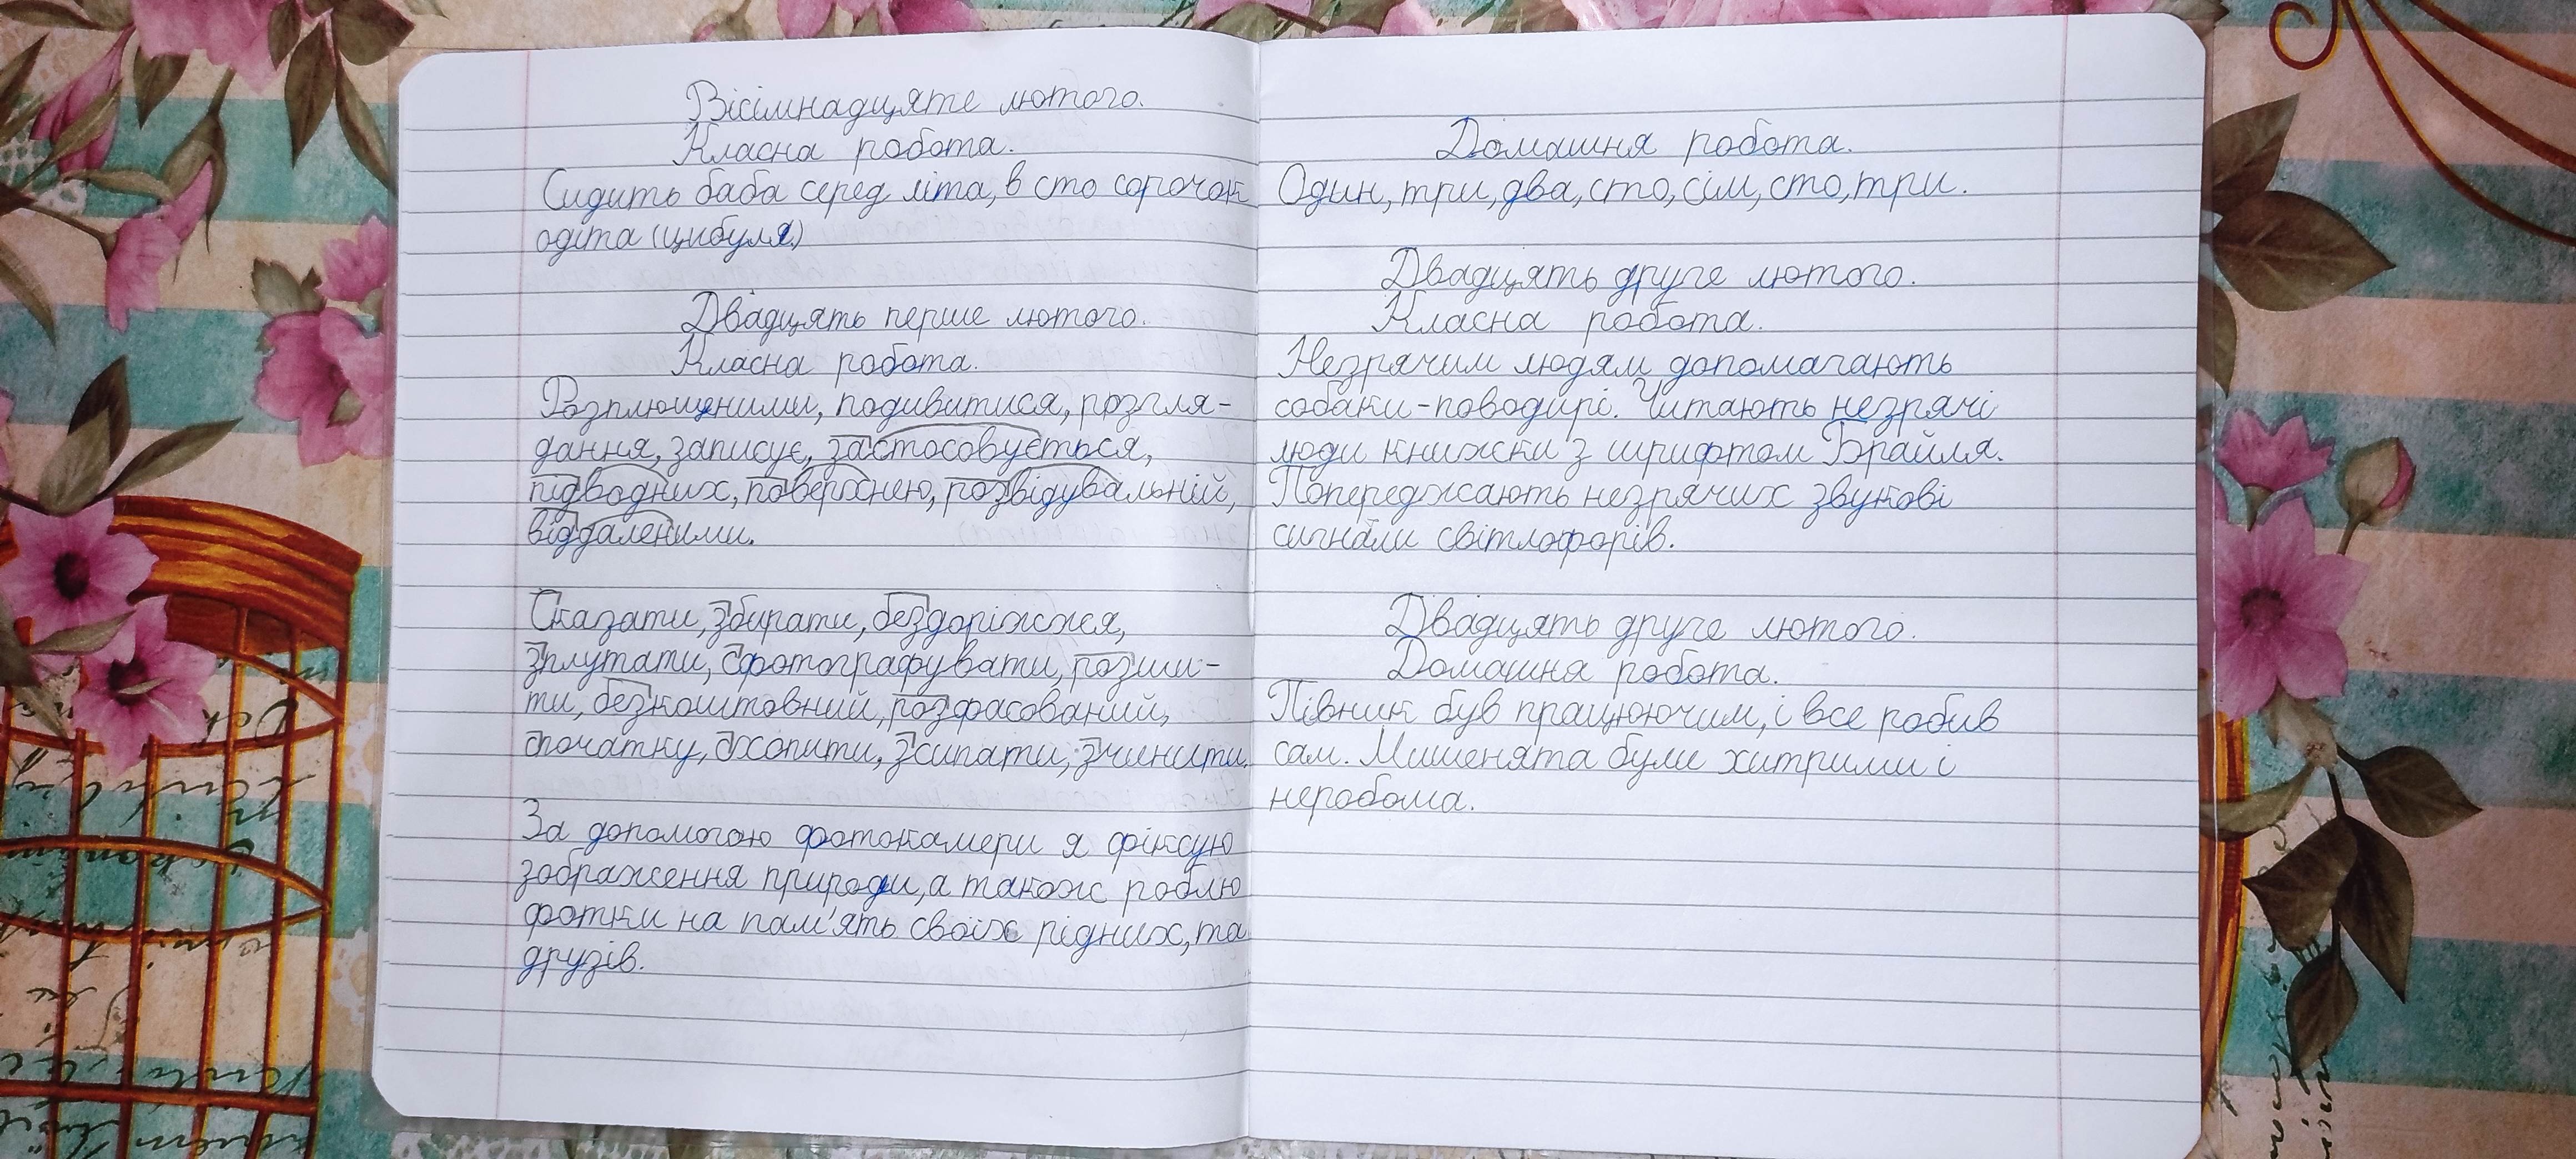 Вісімнадцяте лютого.
Класна робота.
Сидить баба серед літа, в сто сорочок
одіта (цибуля.)
Двадцять перше лютого.
Класна робота.
Розплющеними, подивитися, розгля-
дання, записує, застосовується,
підводних, поверхнею, розвідувальній,
віддаленими.
Сказати, збирати, бездоріжжя,
зплутати, сфотографувати, розши-
ти, безкоштовний, розфасований,
спочатку, схопити, зсипати, зчинити.
За допомогою фотокамери я фіксую
зображення природи, а також роблю
фотки на пам'ять своїх рідних, та
друзів.
Домашня робота.
Один, три, два, сто, сім, сто, три.
Двадцять друге лютого.
Класна робота.
Незрячим людям допомагають
собаки-поводирі. Читають незрячі
люди книжки з шрифтом Брайля.
Попереджають незрячих звукові
сигнали світлофорів.
Двадцять друге лютого.
Домашна робота.
Півник був працюючим, і все робив
сам. Мишенята були хитрими і
неробома.